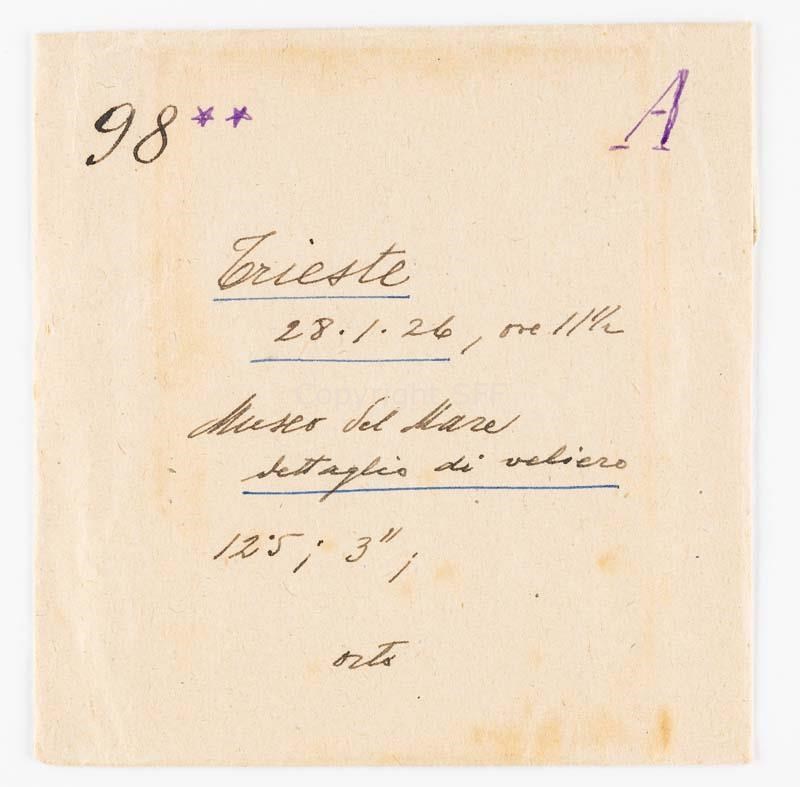 98** A
Trieste
28.1.26, ore 11 1/2
Copyright SFF
Museo del Mare
dettaglio di veliero
12·5; 3";
orto